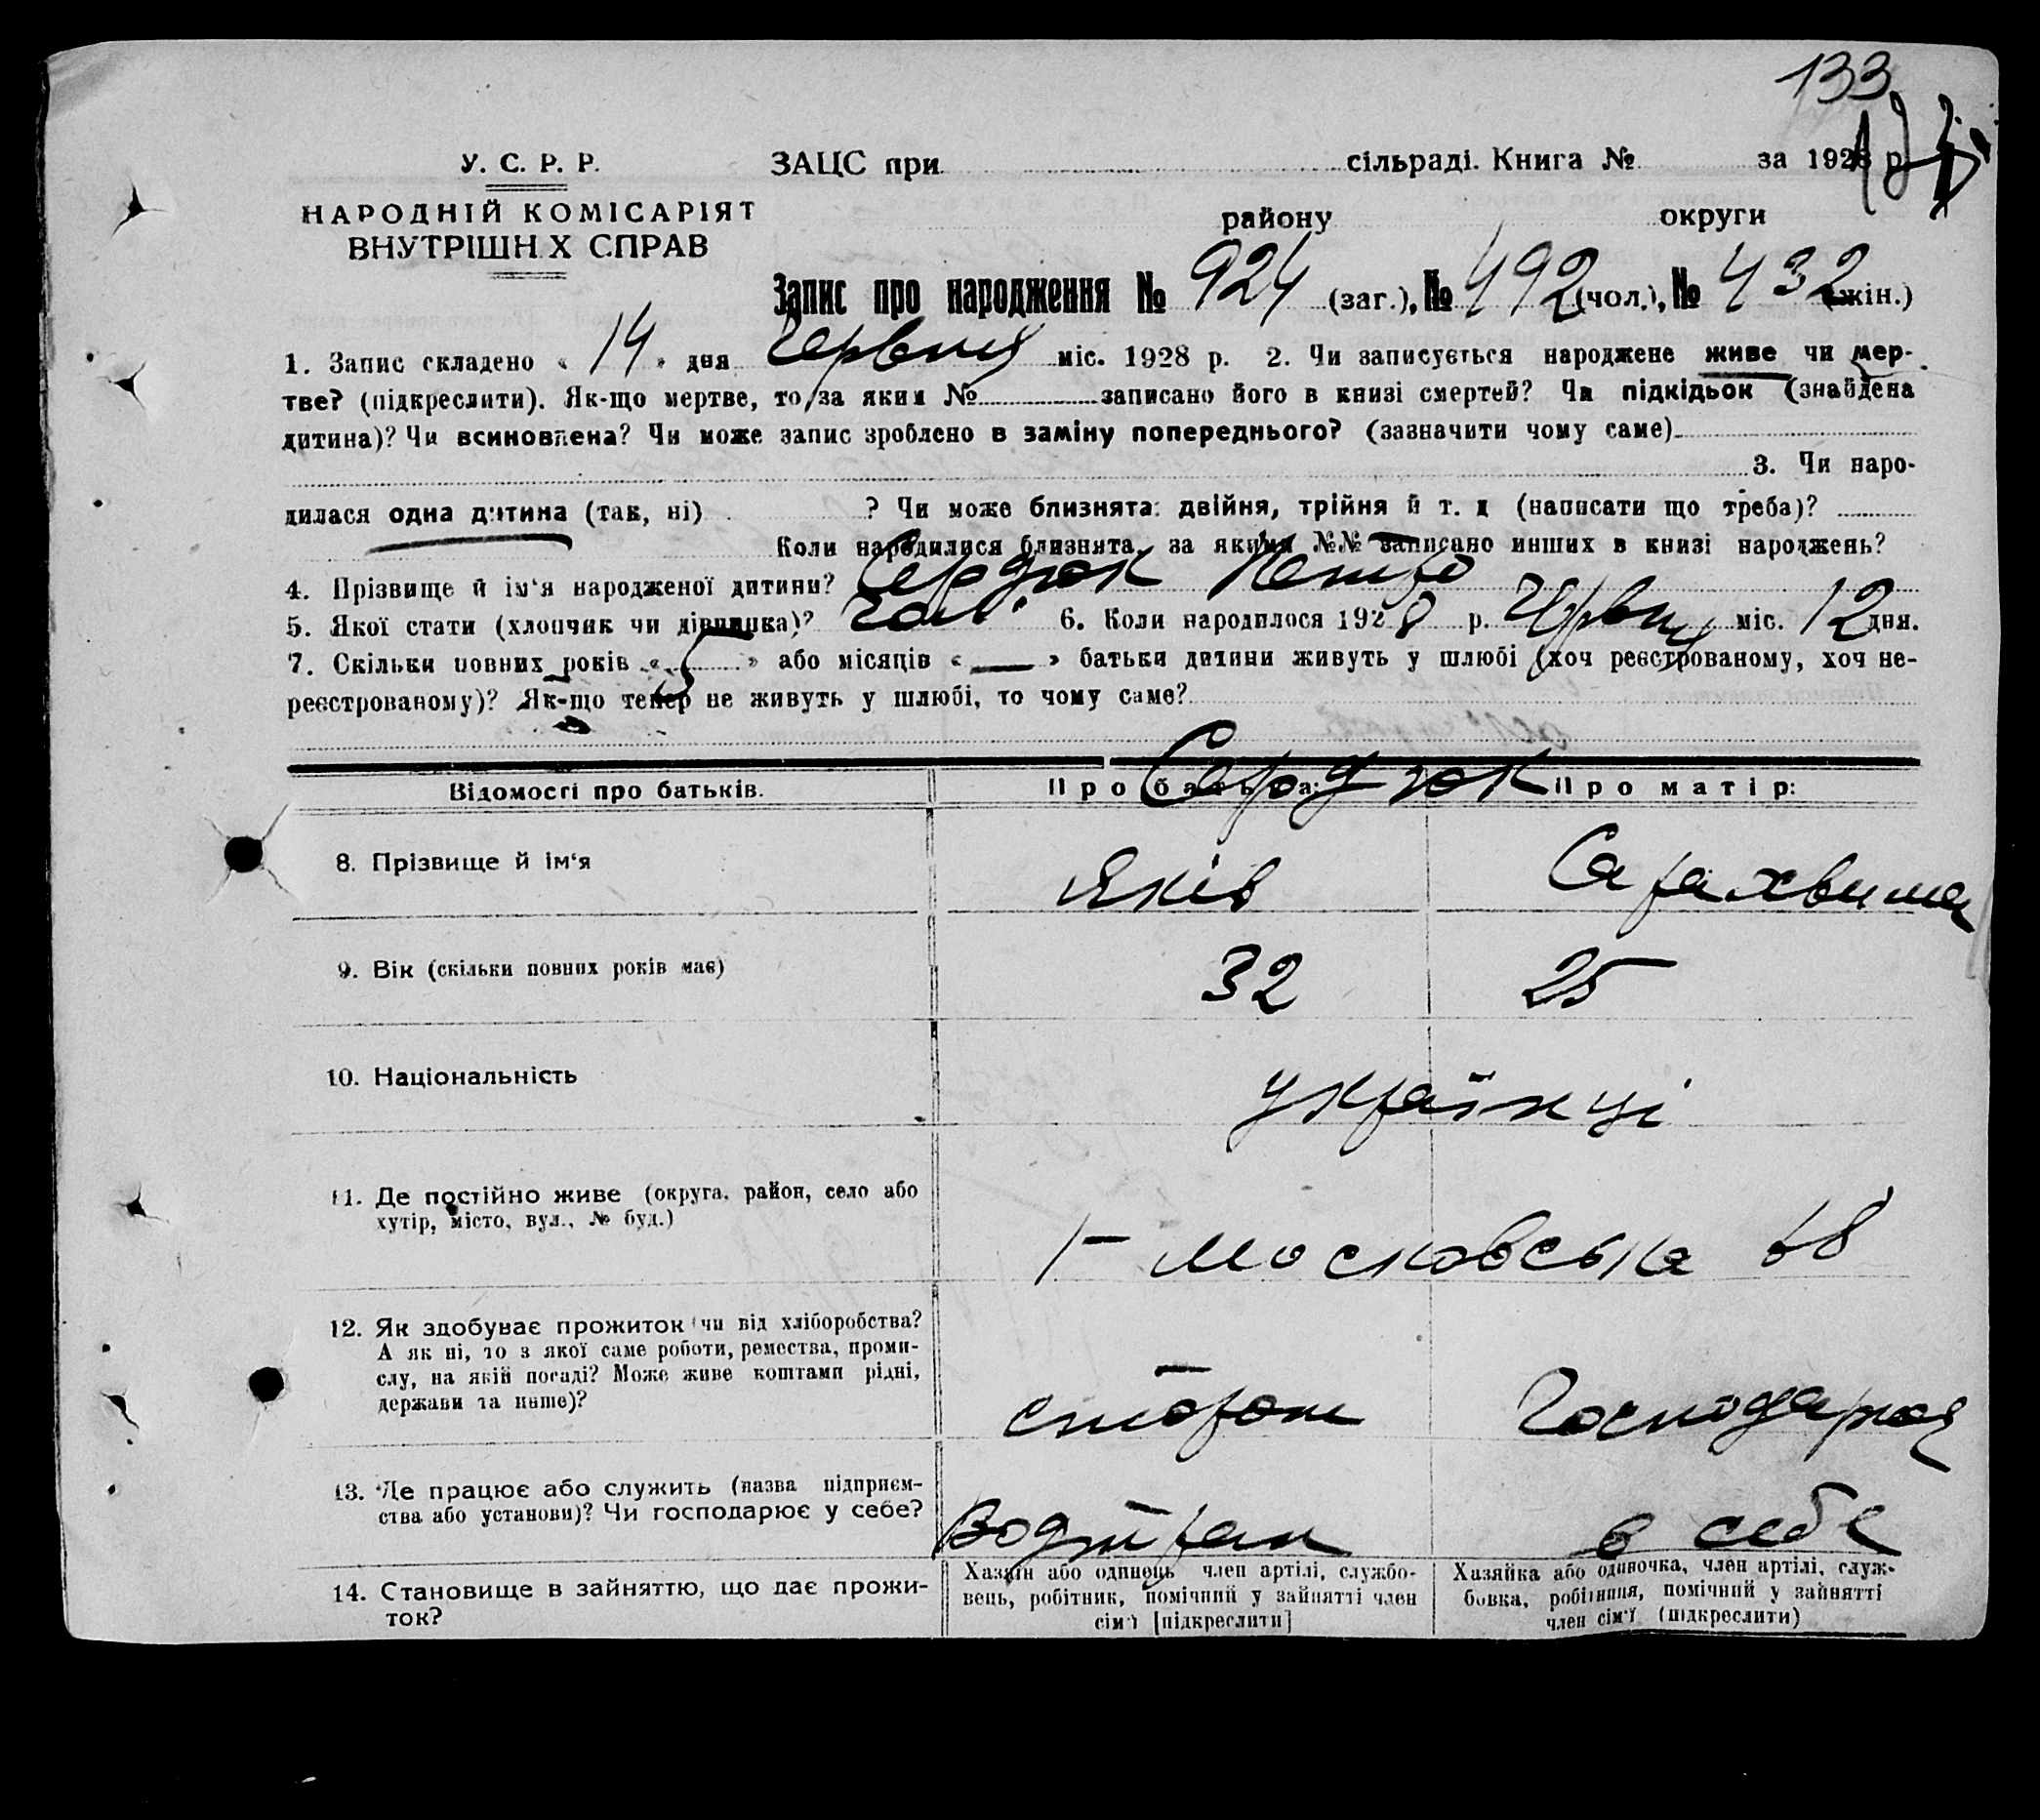 133
У. С. Р. Р. ЗАЦС при сільраді. Книга № за 1928 р.
НАРОДНІЙ КОМІСАРІЯТ району округи
ВНУТРІШН Х СПРАВ
Запис про народження № 924 (заг.), № 492 (чол.), № 432 (жін.)
1. Запис складено « 14 » дня Червня міс. 1928 р. 2. Чи записується народжене живе чи мер-
тве? (підкреслити). Як-що мертве, то за яким № записано його в книзі смертей? Чи підкідьок (знайдена
дитина)? Чи всиновлена? Чи може запис зроблено в заміну попереднього? (зазначити чому саме)
3. Чи наро-
дилася одна дитина (так, ні) ? Чи може близнята: двійня, трійня й т. д (написати що треба)?
Коли народилися близнята, за якими №№ записано инших в книзі народжень?
4. Прізвище й ім‘я народженої дитини? Сердюк
5. Якої стати (хлопчик чи дівчинка)? чол. 6. Коли народилося 1928 р. Червня міс. 12 дня.
7. Скільки повних років « 5 » або місяців « — » батьки дитини живуть у шлюбі (хоч реєстрованому, хоч не-
реєстрованому)? Як-що тепер не живуть у шлюбі, то чому саме?
Сердюк
Відомості про батьків. Про батька: Про матір:
8. Прізвище й ім‘я Яків Сарахвима
9. Вік (скільки повних років має) 32 25
10. Національність українці
11. Де постійно живе (округа, район, село або
хутір, місто, вул., № буд.)
1– Московська 68
12. Як здобуває прожиток (чи від хліборобства?
А як ні, то з якої саме роботи, ремества, проми-
слу, на якій посаді? Може живе коштами рідні,
держави та инше)?
сторож Господарює
13. Де працює або служить (назва підприєм-
ства або установи)? Чи господарює у себе?
Водтран в себе
14. Становище в зайняттю, що дає прожи-
ток?
Хазяїн або одинець член артілі, службо-
вець, робітник, помічний у зайнятті член
сім‘ї [підкреслити]
Хазяйка або одиночка, член артілі, служ-
бовка, робітниця, помічний у зайнятті
член сім‘ї (підкреслити)